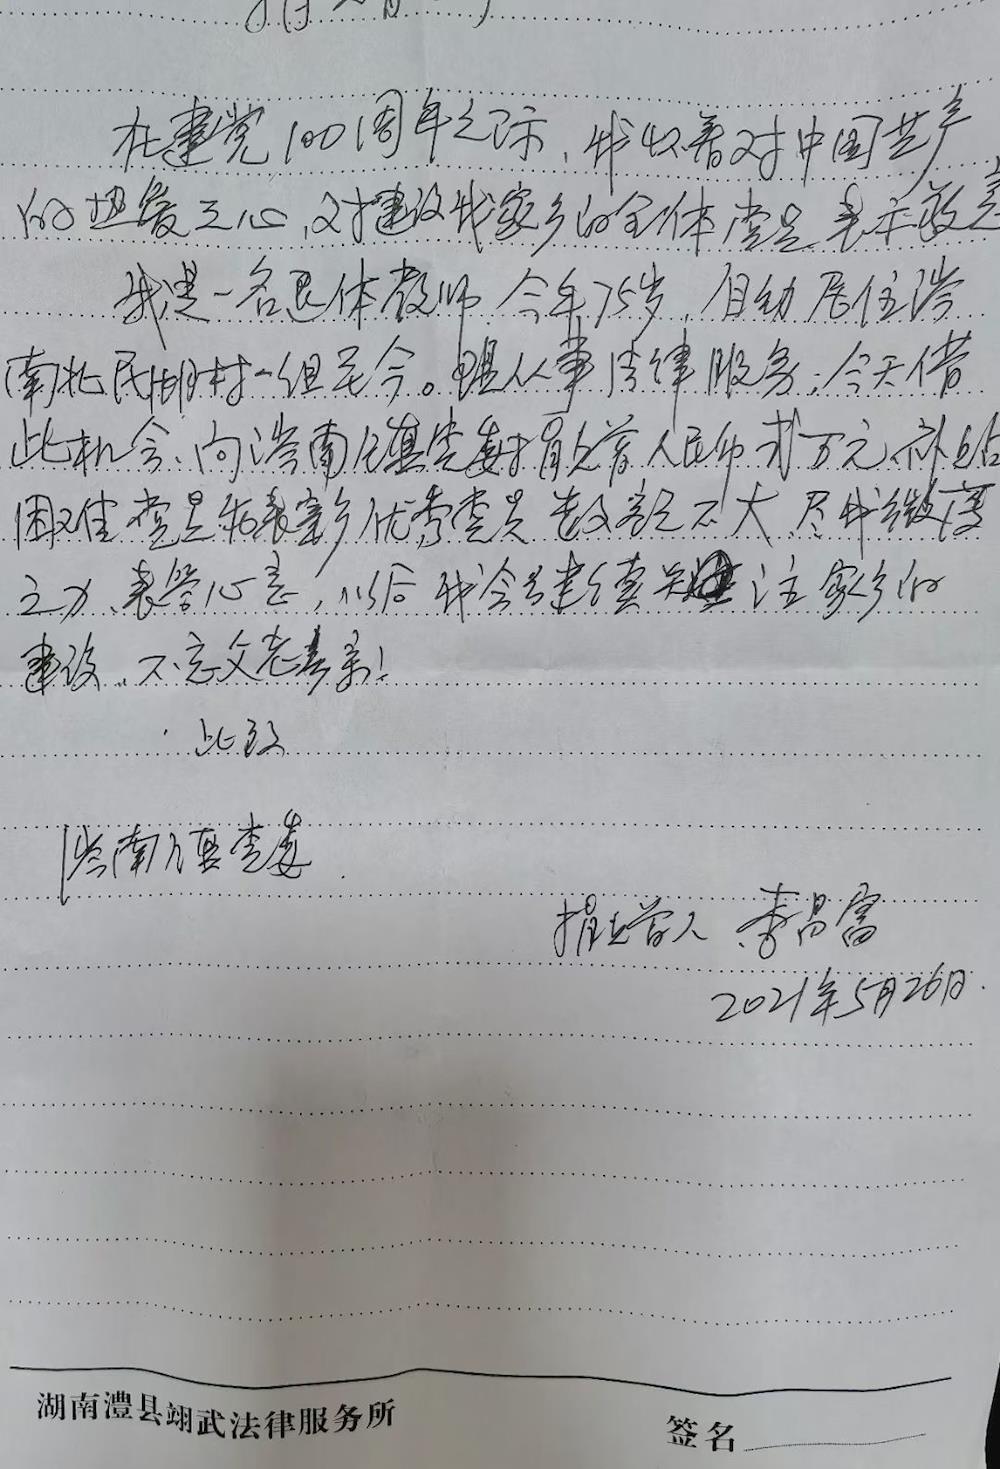 在建党100周年之际，我怀着对中国共产
的热爱之心，对建设我家乡的全体党员表示敬意
我是一名退休教师，今年75岁，自幼居住涔
南北民湖村一组至今。且从事法律服务，今天借
此机会，向涔南镇党委捐资人民币贰万元，补贴
困难党员和表彰家乡优秀党员，数额不大，尽我微薄
之力，表答心意，以后我会继续关注家乡的
建设，不忘父老乡亲！
此致
涔南镇党委
捐资人 李昌富
2021年5月26日
湖南澧县翊武法律服务所 签名